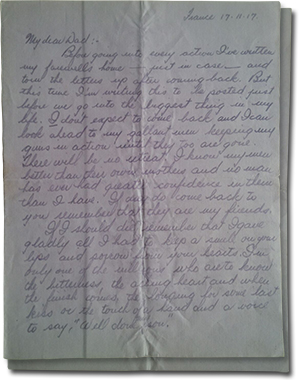 France 19.11.17.
My dear Dad:-
Before going into every action I've written
my farewells home — just in case — and
torn the letters up after coming back. But
this time I'm writing this to be posted just
before we go into the biggest thing in my
life. I don't expect to come back and I can
look ahead to my gallant men keeping my
guns in action until they too are gone.
There will be no retreat. I know my men
better than their own mothers and no man
has ever had greater confidence in them
than I have. If any do come back to
you remember that they are my friends.
If I should die remember that I gave
gladly all I had to keep a smile on your
lips and sorrow from your hearts. I'm
only one of the millions who are to know
the bitterness, the aching heart and when
the finish comes, the longing for some last
kiss or the touch of a hand and a voice
to say, "Well done son."